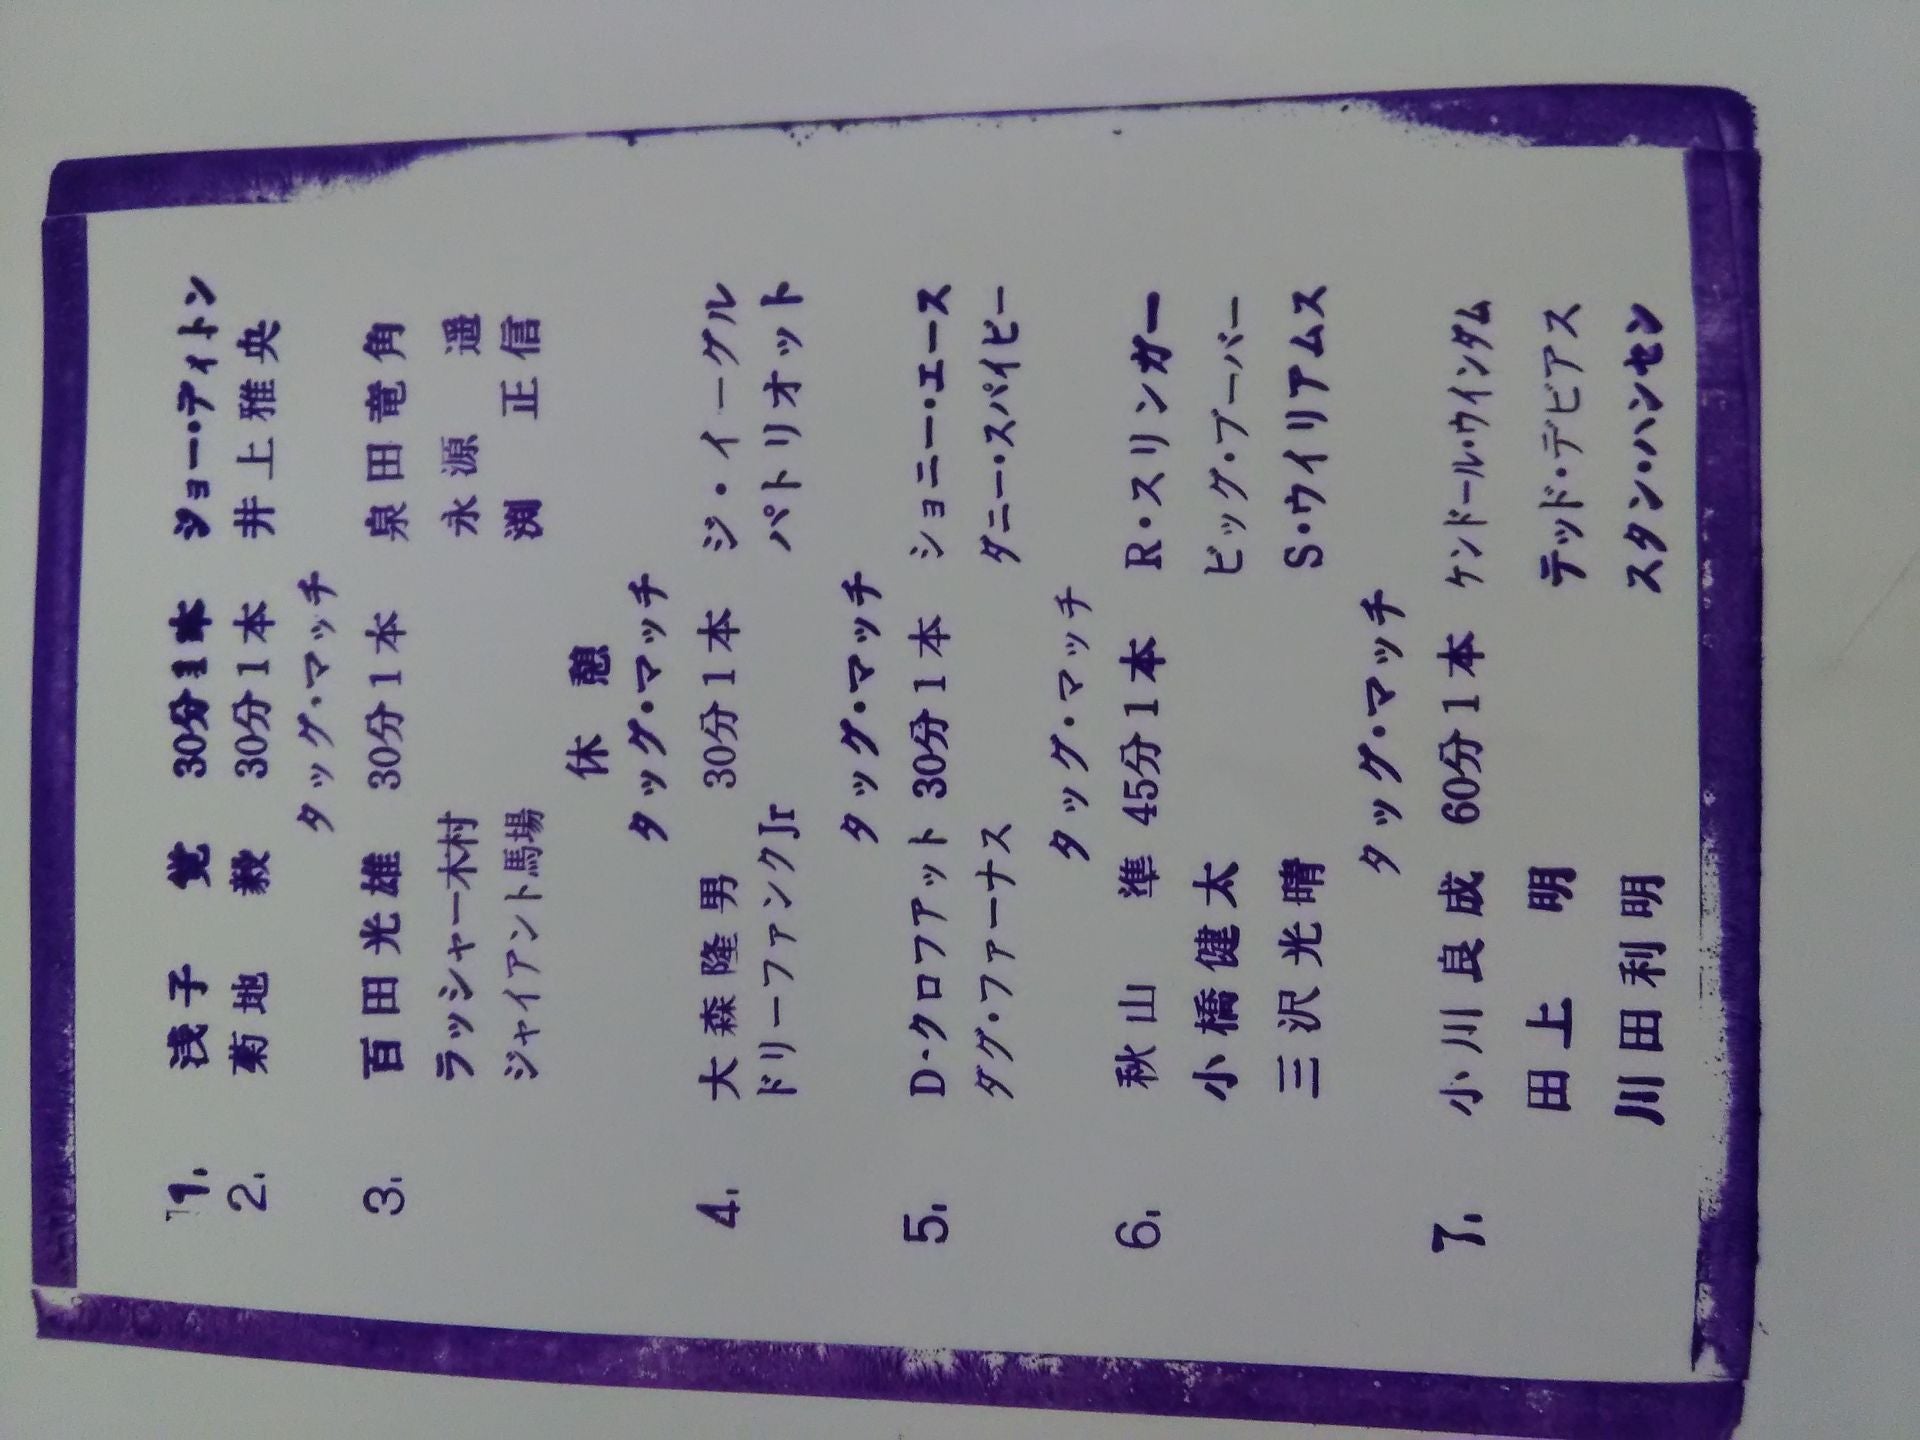 1. 浅子 覚 30分1本 ジョー・ディトン
2. 菊地 毅 30分1本 井上雅央
タッグ・マッチ
3. 百田光雄 30分1本 泉田竜角
ラッシャー木村 永源 遥
ジャイアント馬場 渕 正信
休憩
タッグ・マッチ
4. 大森隆男 30分1本 ジ・イーグル
ドリーファンクJr パトリオット
タッグ・マッチ
5. D・クロフアット 30分1本 ジョニー・エース
ダグ・ファーナス ダニー・スパイビー
タッグ・マッチ
6. 秋山 準 45分1本 R・スリンガー
小橋健太 ビッグ・ブーバー
三沢光晴 S・ウイリアムス
タッグ・マッチ
7. 小川良成 60分1本 ケンドール・ウインダム
田上 明 テッド・デビアス
川田利明 スタン・ハンセン